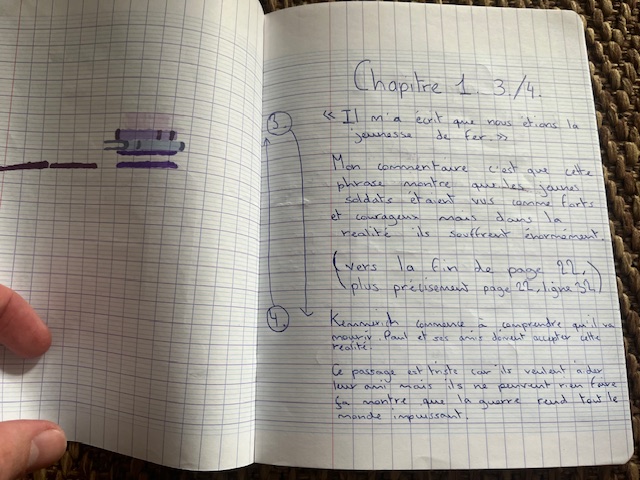 Chapitre 1. 3./4.
3.
« Il m'a écrit que nous étions la
jeunesse de fer. »
Mon commentaire c'est que cette
phrase montre que les jeunes
soldats étaient vus comme forts
et courageux mais dans la
realité ils souffrent énormément.
(vers la fin de page 22,
plus précisement page 22, ligne 32)
4.
Kemmerich commence à comprendre qu'il va
mourir. Paul et ses amis doivent accepter cette
réalité.
Ce passage est triste car ils veulent aider
leur ami mais ils ne peuvent rien faire
ça montre que la guerre rend tout le
monde impuissant.